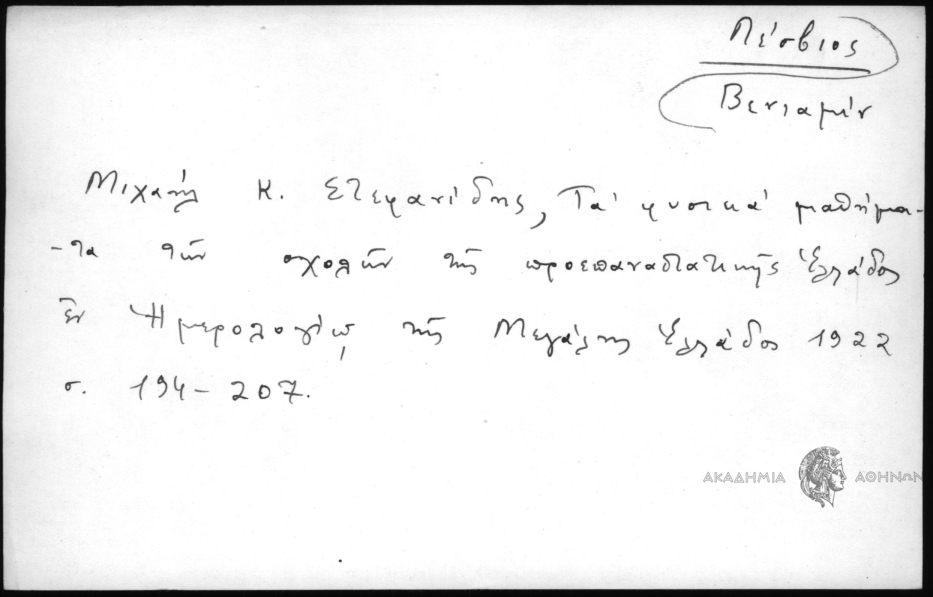 Λέσβιος
Βενιαμίν
Μιχαήλ Κ. Στεφανίδης, Τα' φυσικα' μαθήμα-
-τα τῶν σχολῶν τῆς προεπαναστατικῆς Ἑλλάδος
ἐν Ἡμερολογίῳ τῆς Μεγάλης Ἑλλάδος 1922
σ. 194-207.
ΑΚΑΔΗΜΙΑ ΑΘΗΝΩΝ